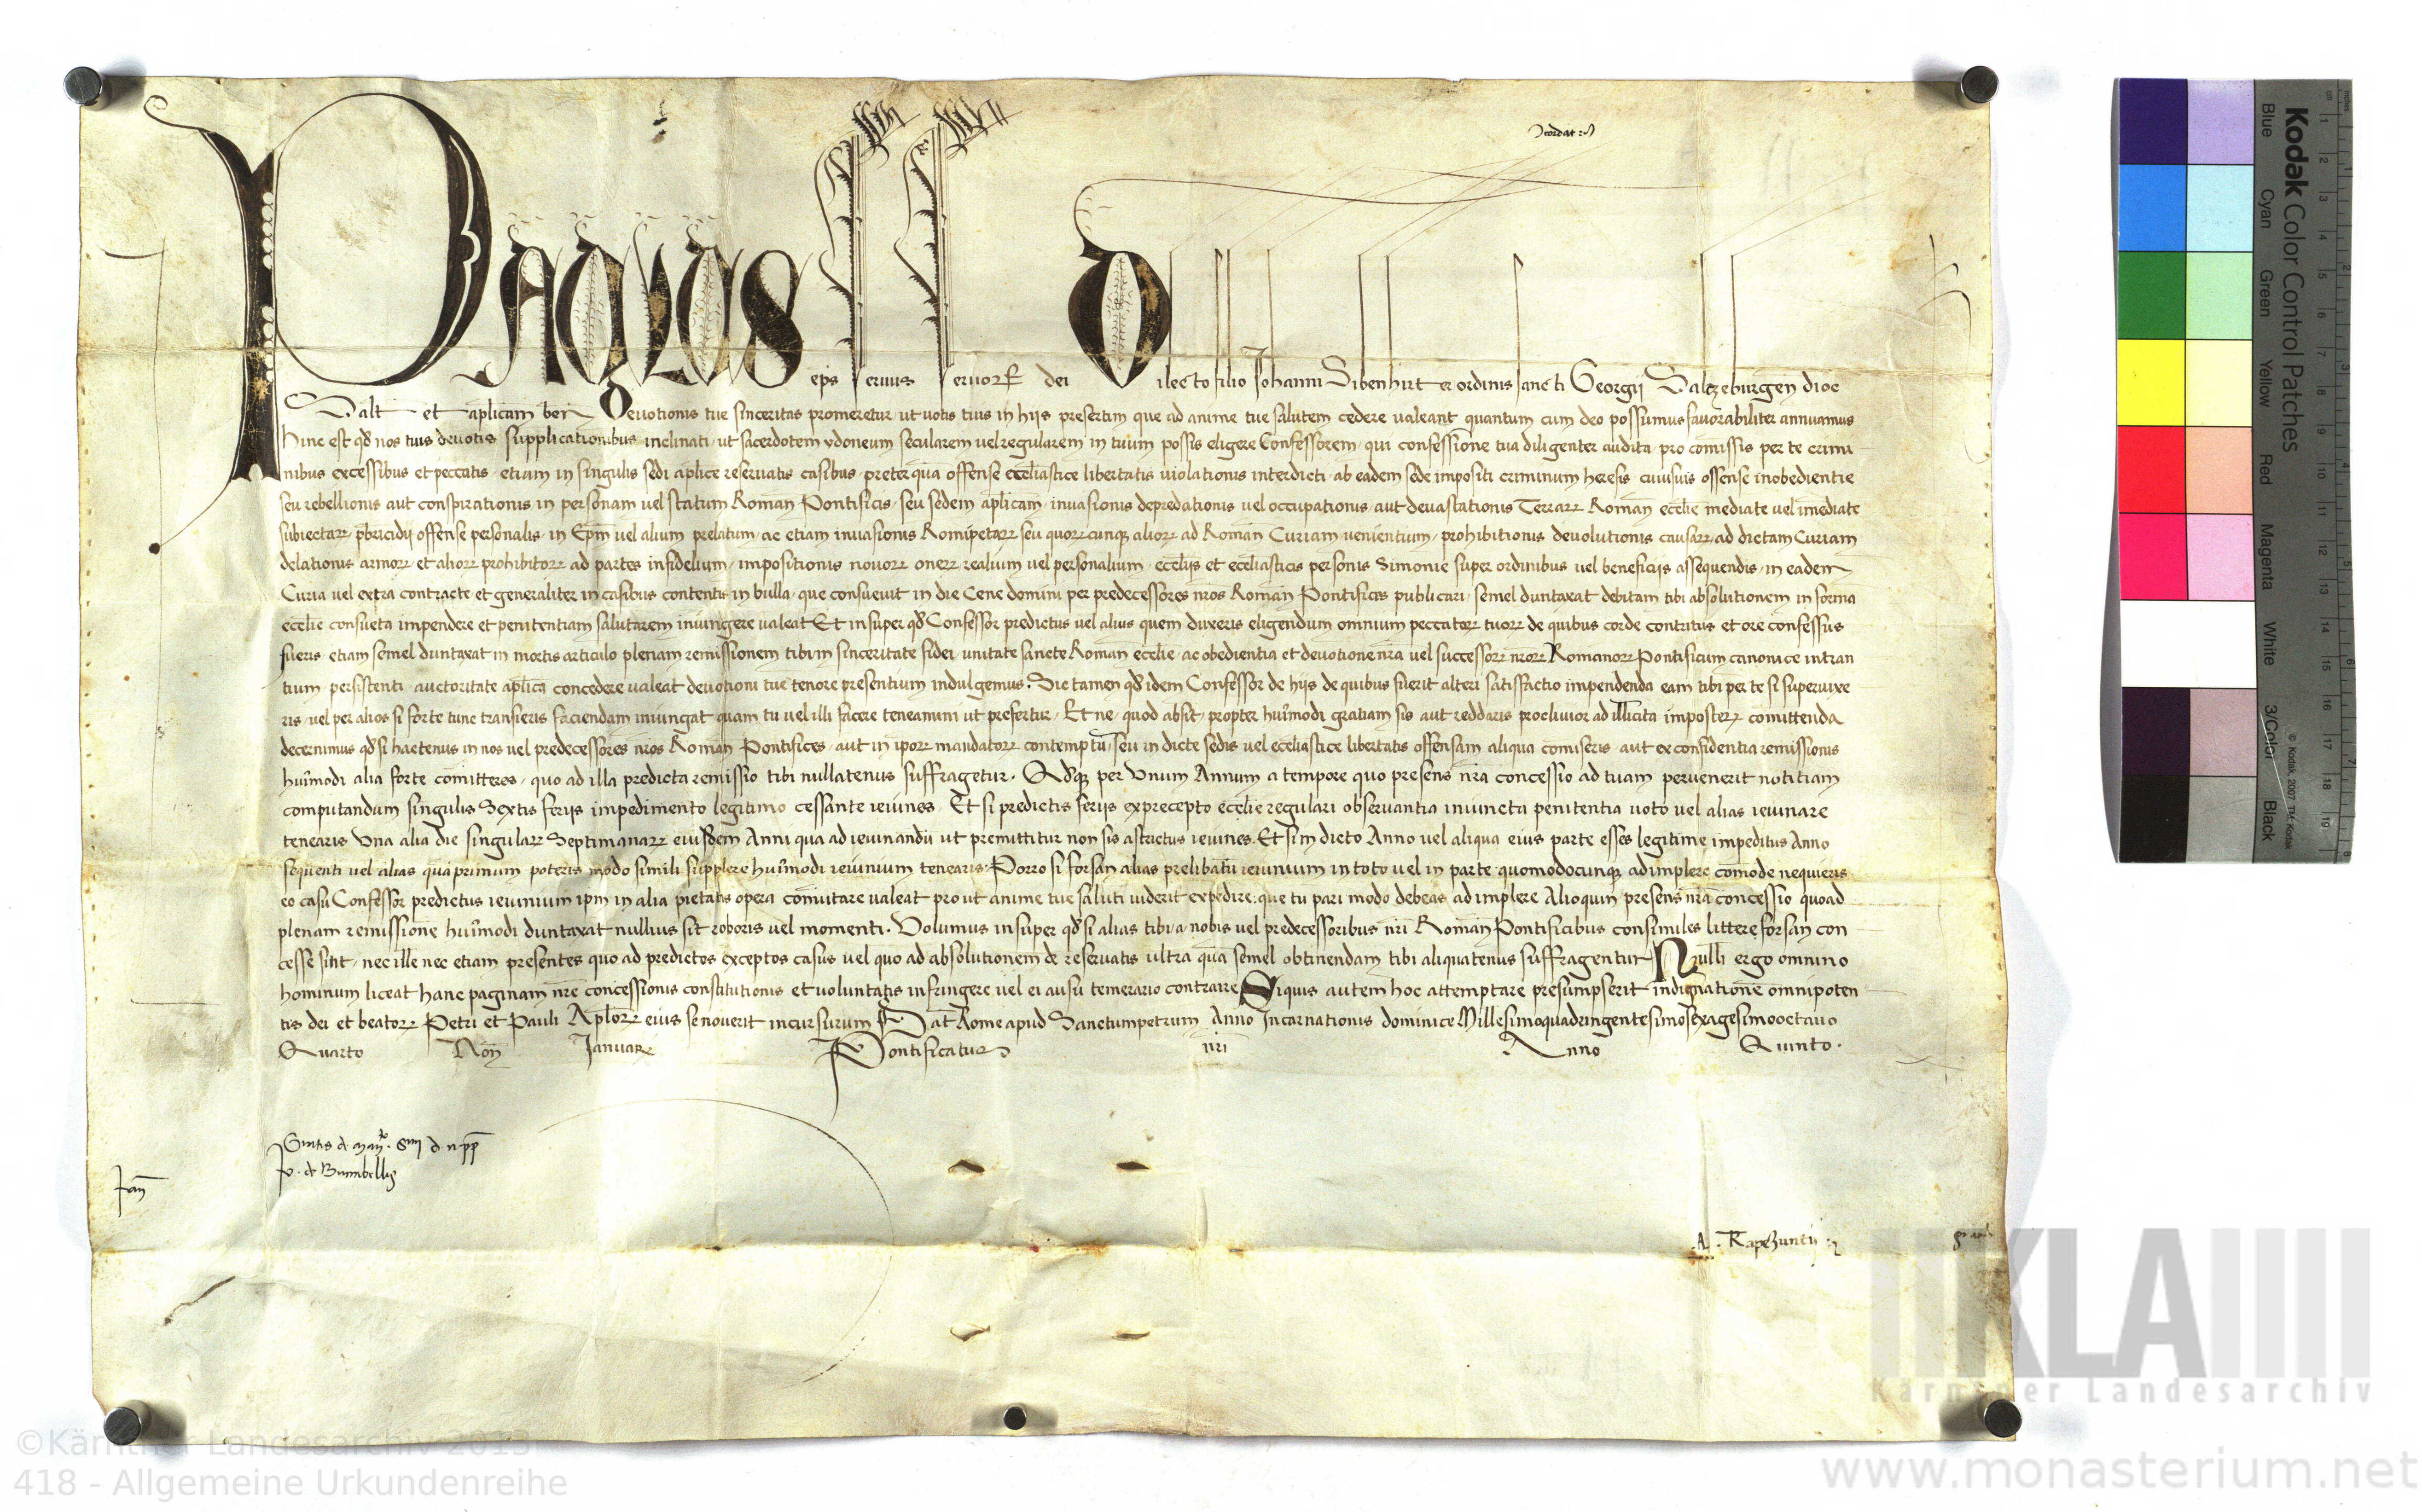 Paulus eps servus servorꝝ dei Dilecto filio Johanni Sibenhirter ordinis sancti Georgij Saltzeburgen dioc
Salt et aplicam ben Devotionis tue sinceritas promeretur ut votis tuis in hijs presertim que ad anime tue salutem cedere valeant quantum cum deo possumus favorabiliter annuamus
hinc est qđ nos tuis devotis supplicationibus inclinati ut sacerdotem ydoneum secularem vel regularem in tuum possis eligere Confessorem qui confessione tua diligenter audita pro comissis per te crimi
nibus excessibus et peccatis etiam in singulis sedi aplice reservatis casibus preterqua offense ecclesiastice libertatis violationis interdicti ab eadem sede impositi criminum heresis cuiusvis offense inobedientie
seu rebellionis aut conspirationis in personam vel statum Roman Pontificis seu sedem aplicam invasionis depredationis vel occupationis aut devastationis Terrarꝝ Roman eccelie mediate vel imediate
subiectarꝝ pbricidij offense personalis in Epm vel alium prelatum ac etiam invasionis Romipetarꝝ seu quorꝝcunqꝫ aliorꝝ ad Roman Curiam venientium prohibitionis devolutionis causarꝝ ad dictam Curiam
delationis armorꝝ et aliorꝝ prohibitorꝝ ad partes infidelium impositionis novorꝝ onerꝝ realium vel personalium ecclijs et eccliasticis personis Simonie super ordinibus vel beneficijs assequendis in eadem
Curia vel extra contracte et generaliter in casibus contentis in bulla que consuevit in die Cene domini per predecessores nros Roman Pontifices publicari semel duntaxat debitam tibi absolutionem in forma
ecclie consueta impendere et penitentiam salutarem iniungere valeat Et insuper qđ Confessor predictus vel alius quem duxeris eligendum omnium peccatorꝝ tuorꝝ de quibus corde contritus et ore confessus
fueris etiam semel duntaxat in mortis articulo plenam remissionem tibi in sinceritate fidei unitate sancte Roman ecclie ac obedientia et devotione nra vel successorꝝ nrorꝝ Romanorꝝ Pontificum canonice intran
tium persistenti auctoritate aplica concedere valeat devotioni tue tenore presentium indulgemus. Sic tamen qđ idem Confessor de hijs de quibus fuerit alteri satisfactio impendenda eam tibi per te si supervixe
ris vel per alios si forte tunc transieris faciendam iniungat quam tu vel illi facere teneamini ut prefertur Et ne quod absit propter hmōi gratiam sis aut reddaris proclivior ad illicita imposterꝝ comittenda
decernimus qđ si hactenus in nos vel predecessores nros Roman Pontifices aut in iporꝝ mandatorꝝ contemptu seu in dicte sedis vel eccliastice libertatis offensam aliqua comiseris aut ex confidentia remissionis
humōi alia forte comitteres quo ad illa predicta remissio tibi nullatenus suffragetur. Qđqꝫ per Unum Annum a tempore quo presens nra concessio ad tuam pervenerit notitiam
computandum singulis Sextis ferijs impedimento legitimo cessante ieiunes Et si predictis ferijs ex precepto ecclie regulari observantia iniuncta penitentia voto vel alias ieiunare
tenearis Una alia die singularꝝ Septimanarꝝ eiusdem Anni qua ad ieiunandū ut premittitur non sis astrictus ieiunes. Et si in dicto Anno vel aliqua eius parte esses legitime impeditus Anno
sequenti vel alias quaprimum poteris modo simili supplere humōi ieiunium tenearis Porro si forsan alias prelibatū ieiunium in toto vel in parte quomodocunqꝫ adimplere comode nequieris
eo casu Confessor predictus ieiunium ipm in alia pietatis opera comutare valeat prout anime tue saluti viderit expedire que tu pari modo debeas adimplere Alioquin presens nra concessio quoad
plenam remissione humōi duntaxat nullius sit roboris vel momenti. Volumus insuper qđ si alias tibi a nobis vel predecessoribus nri Roman Pontificibus consimiles littere forsan con
cesse sint nec ille nec etiam presentes quo ad predictos exceptos casus vel quo ad absolutionem de reservatis ultra qua semel obtinendam tibi aliquatenus suffragentur Nulli ergo omnino
hominum liceat hanc paginam nre concessionis constitutionis et voluntatis infringere vel ei ausu temerario contraire Siquis autem hoc attemptare presumpserit indignatione omnipoten
tis dei et beatorꝝ Petri et Pauli Aplorꝝ eius se noverit incursurum Dat Rome apud Sanctumpetrum Anno Incarnationis dominice Millesimoquadringentesimosexagesimooctavo
Quarto Non Januarꝝ Pontificatus nri Anno Quinto.
Jan
A. Trapezuntij
Kodak Color Control Patches
Blue Cyan Green Yellow Red Magenta White 3/Color Black
© Kodak, 2007 TM: Kodak
KLA
Kärntner Landesarchiv
©Kärntner Landesarchiv 2013
418 - Allgemeine Urkundenreihe
www.monasterium.net